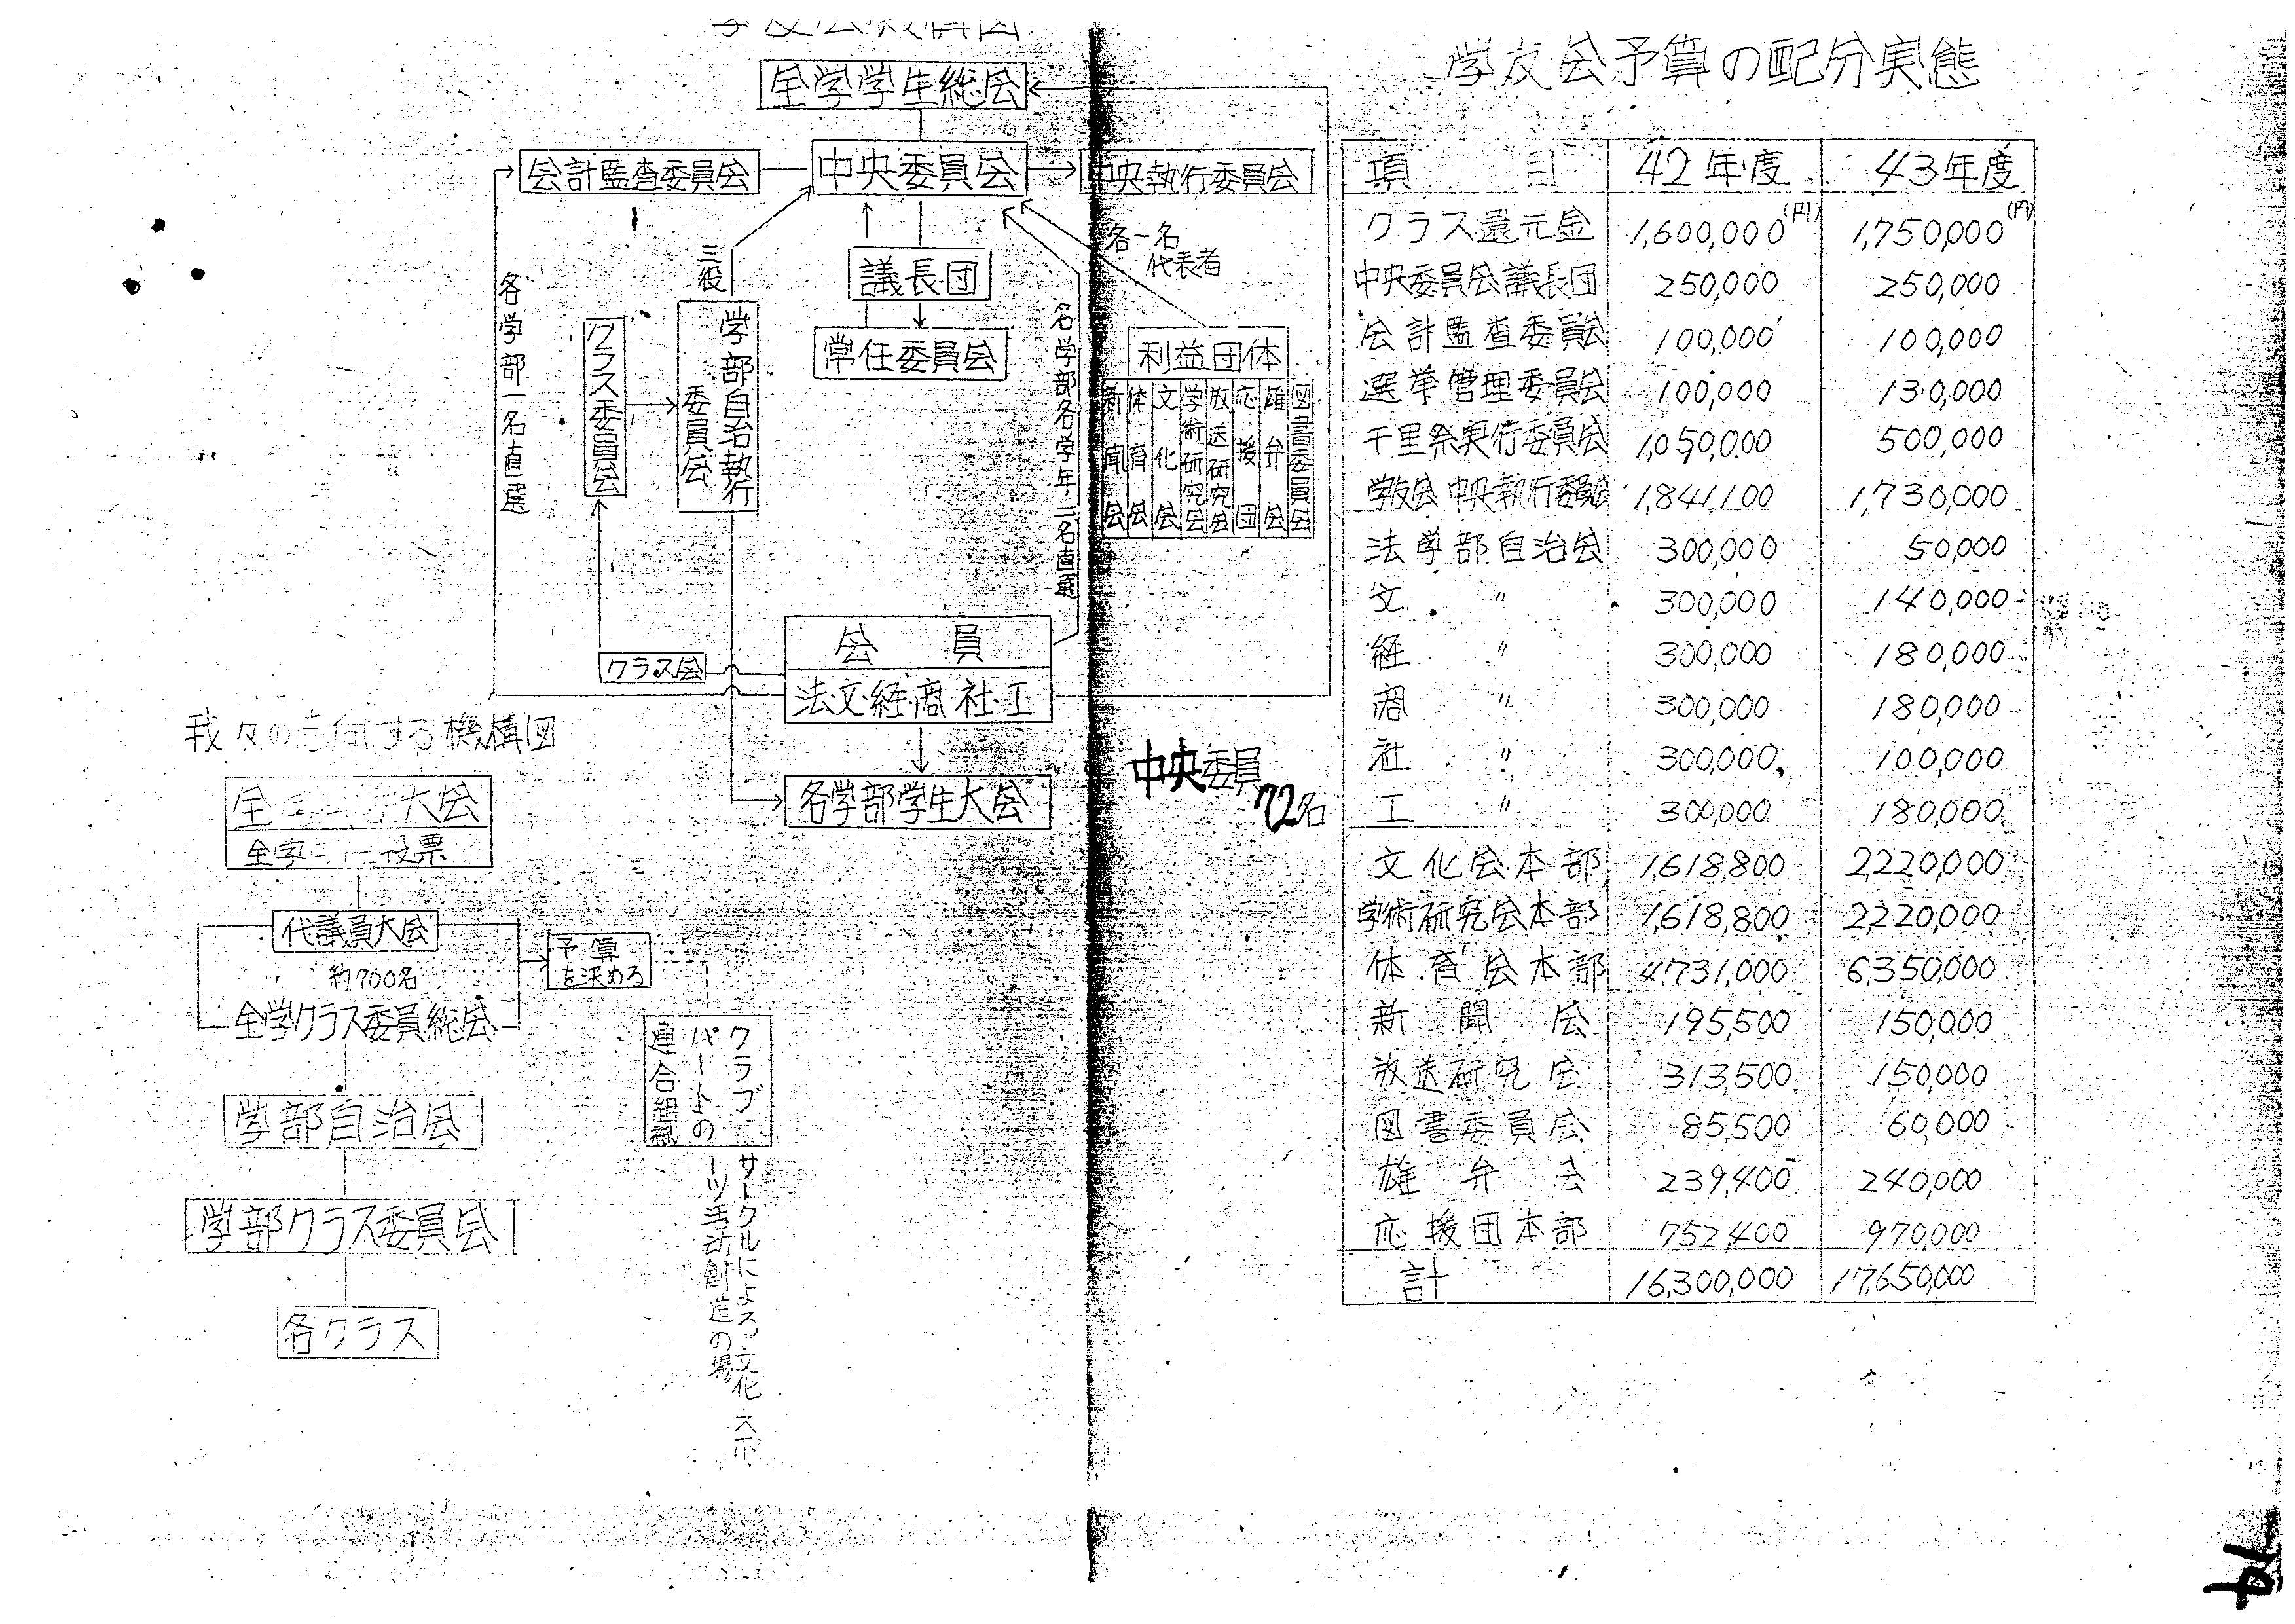 学友会機構図
全学学生総会
会計監査委員会
中央委員会
中央執行委員会
各一名
代表者
三役
議長団
常任委員会
各学部一名直選
クラス委員会
学部自治執行
委員会
各学部各学年二名直選
利益団体
新聞会
体育会
文化会
学術研究会
放送研究会
応援団
雄弁会
図書委員会
会員
クラス会
法文経商社工
各学部学生大会
中央委員
72名
我々の志向する機構図
大会
全学 投票
代議員大会
約700名
全学クラス委員総会
予算
を決める
クラブ
パートの
連合組織
サークルによる文化スポ
ーツ活动創造の場
学部自治会
学部クラス委員会
各クラス
学友会予算の配分実態
項目 42年度 43年度
クラス還元金 1,600,000(円) 1,750,000(円)
中央委員会議長団 250,000 250,000
会計監査委員会 100,000 100,000
選挙管理委員会 100,000 130,000
千里祭実行委員会 1,050,000 500,000
学友会中央執行委員会 1,841,100 1,730,000
法学部自治会 300,000 50,000
文 〃 300,000 140,000
経 〃 300,000 180,000
商 〃 300,000 180,000
社 〃 300,000 100,000
工 〃 300,000 180,000
文化会本部 1,618,800 2,220,000
学術研究会本部 1,618,800 2,220,000
体育会本部 4,731,000 6,350,000
新聞会 195,500 150,000
放送研究会 313,500 150,000
図書委員会 85,500 60,000
雄弁会 239,400 240,000
応援団本部 752,400 970,000
計 16,300,000 17,650,000